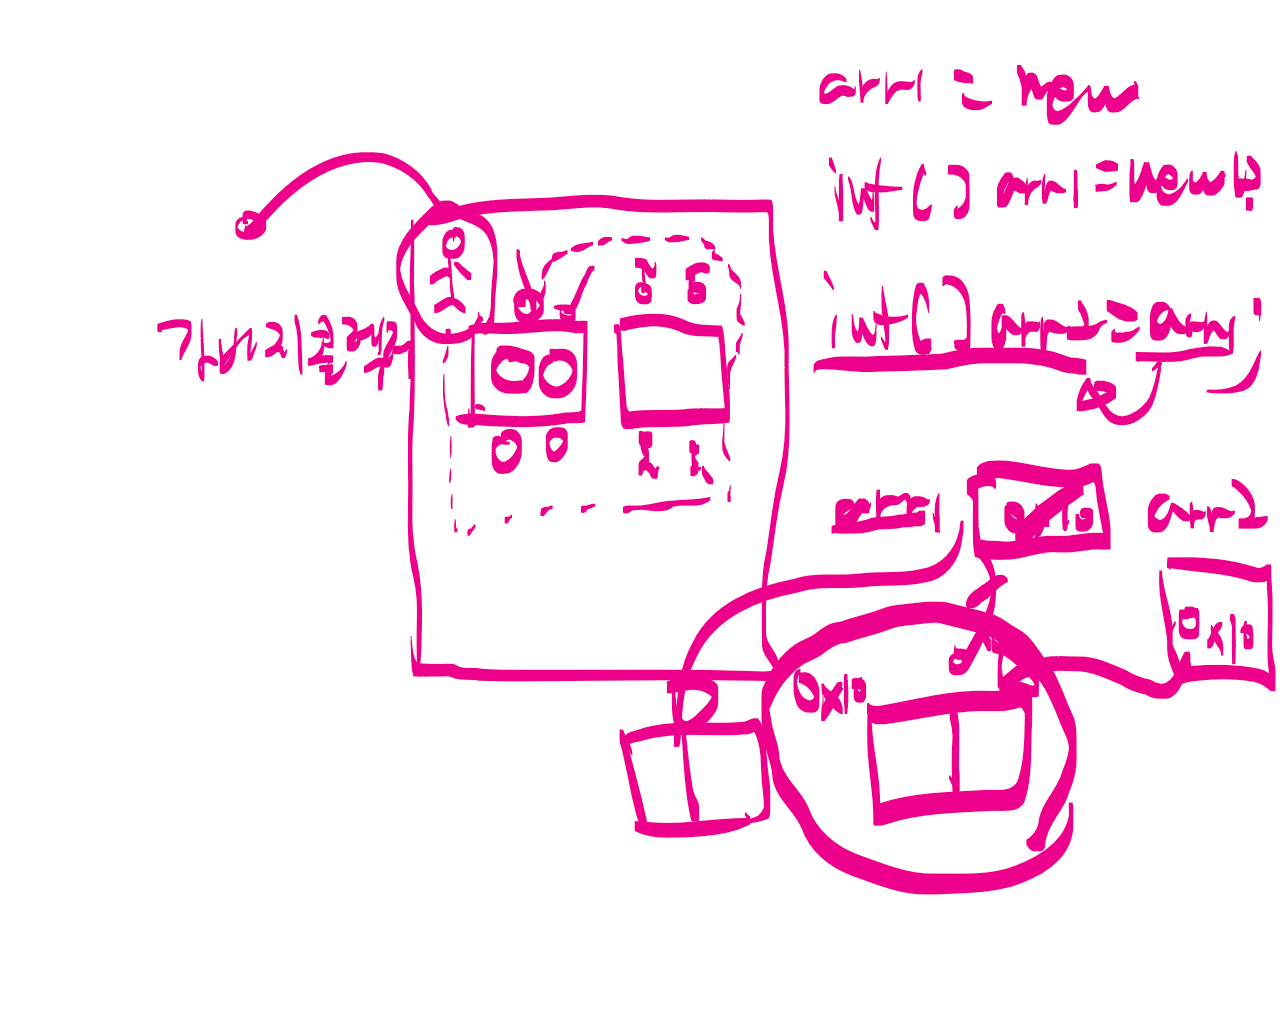 arr1 = new
int[] arr1 = new
int[] arr2 = arr1;
가비지콜렉터
arr1
arr2
0x10
0x10
0x10